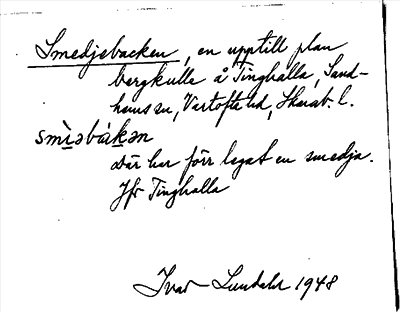 Smedjebacken, en upptill plan
bergkulle å Tinghalla, Sand-
hems sn, Vartofta hd, Skarab. l.
smìəbákən
där har förr legat en smedja.
Jfr Tinghalla
Ivar Lundahl 1948